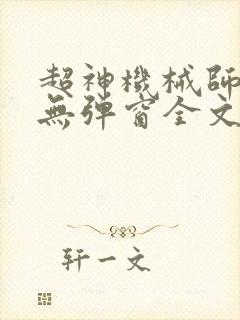 超神機械師
無彈窗全文
轩一文